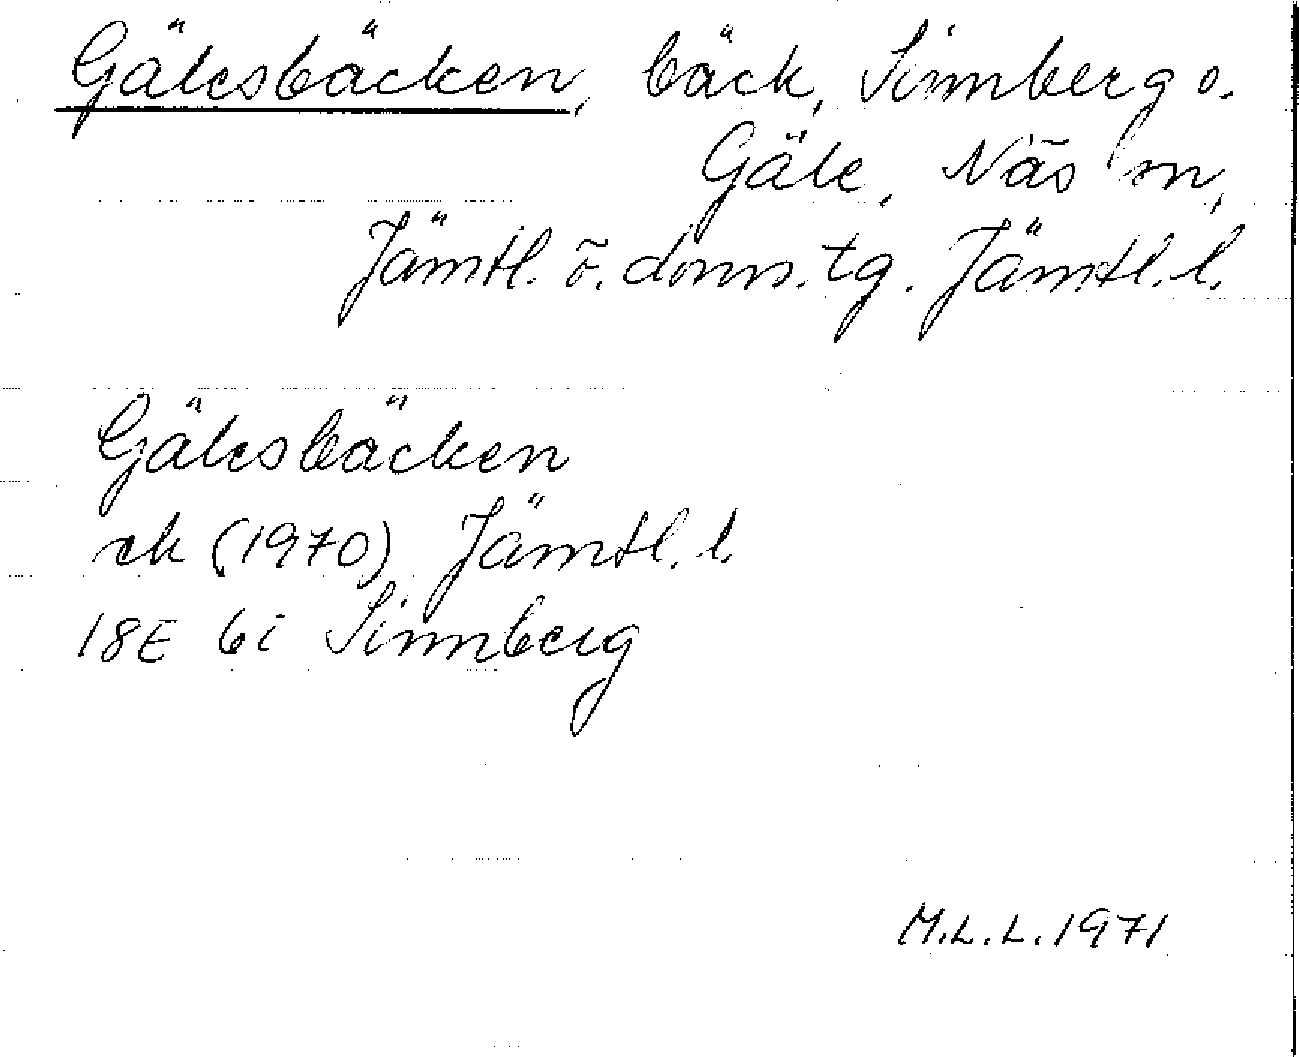 Gälesbäcken, bäck, Sinnberg o.
Gäle, Näs sn,
Jämtl. ö. doms. tg. Jämtl. l.
Gälesbäcken
rk (1970) Jämtl. l.
18E 6i Sinnberg
M.L.L. 1971